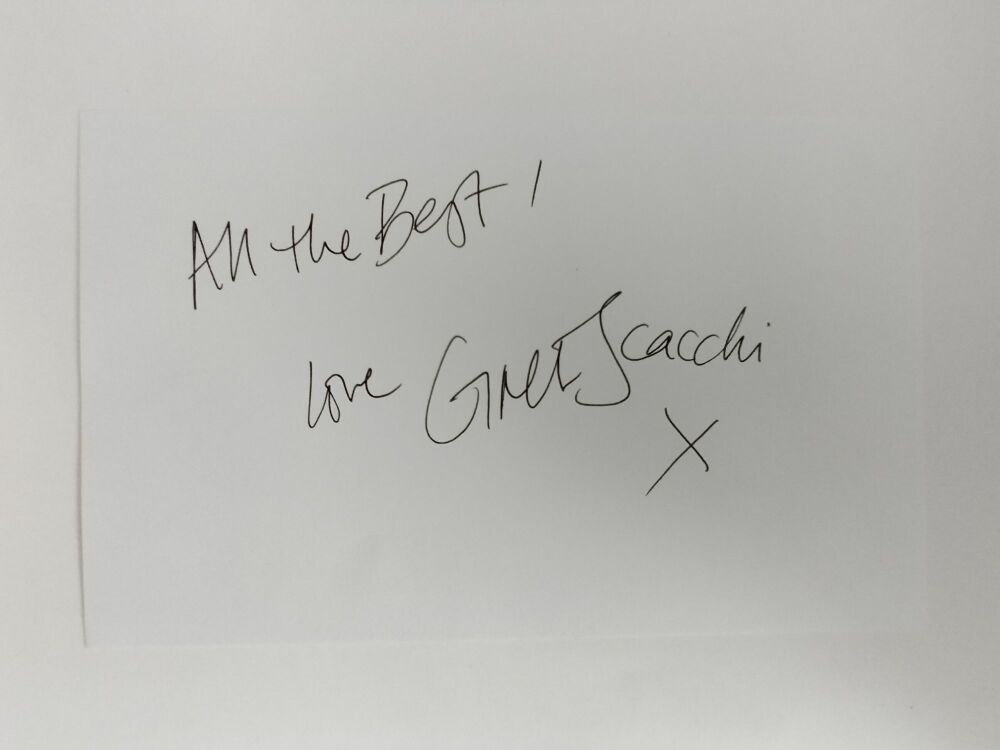 All the Best!
love Greta Scacchi
X